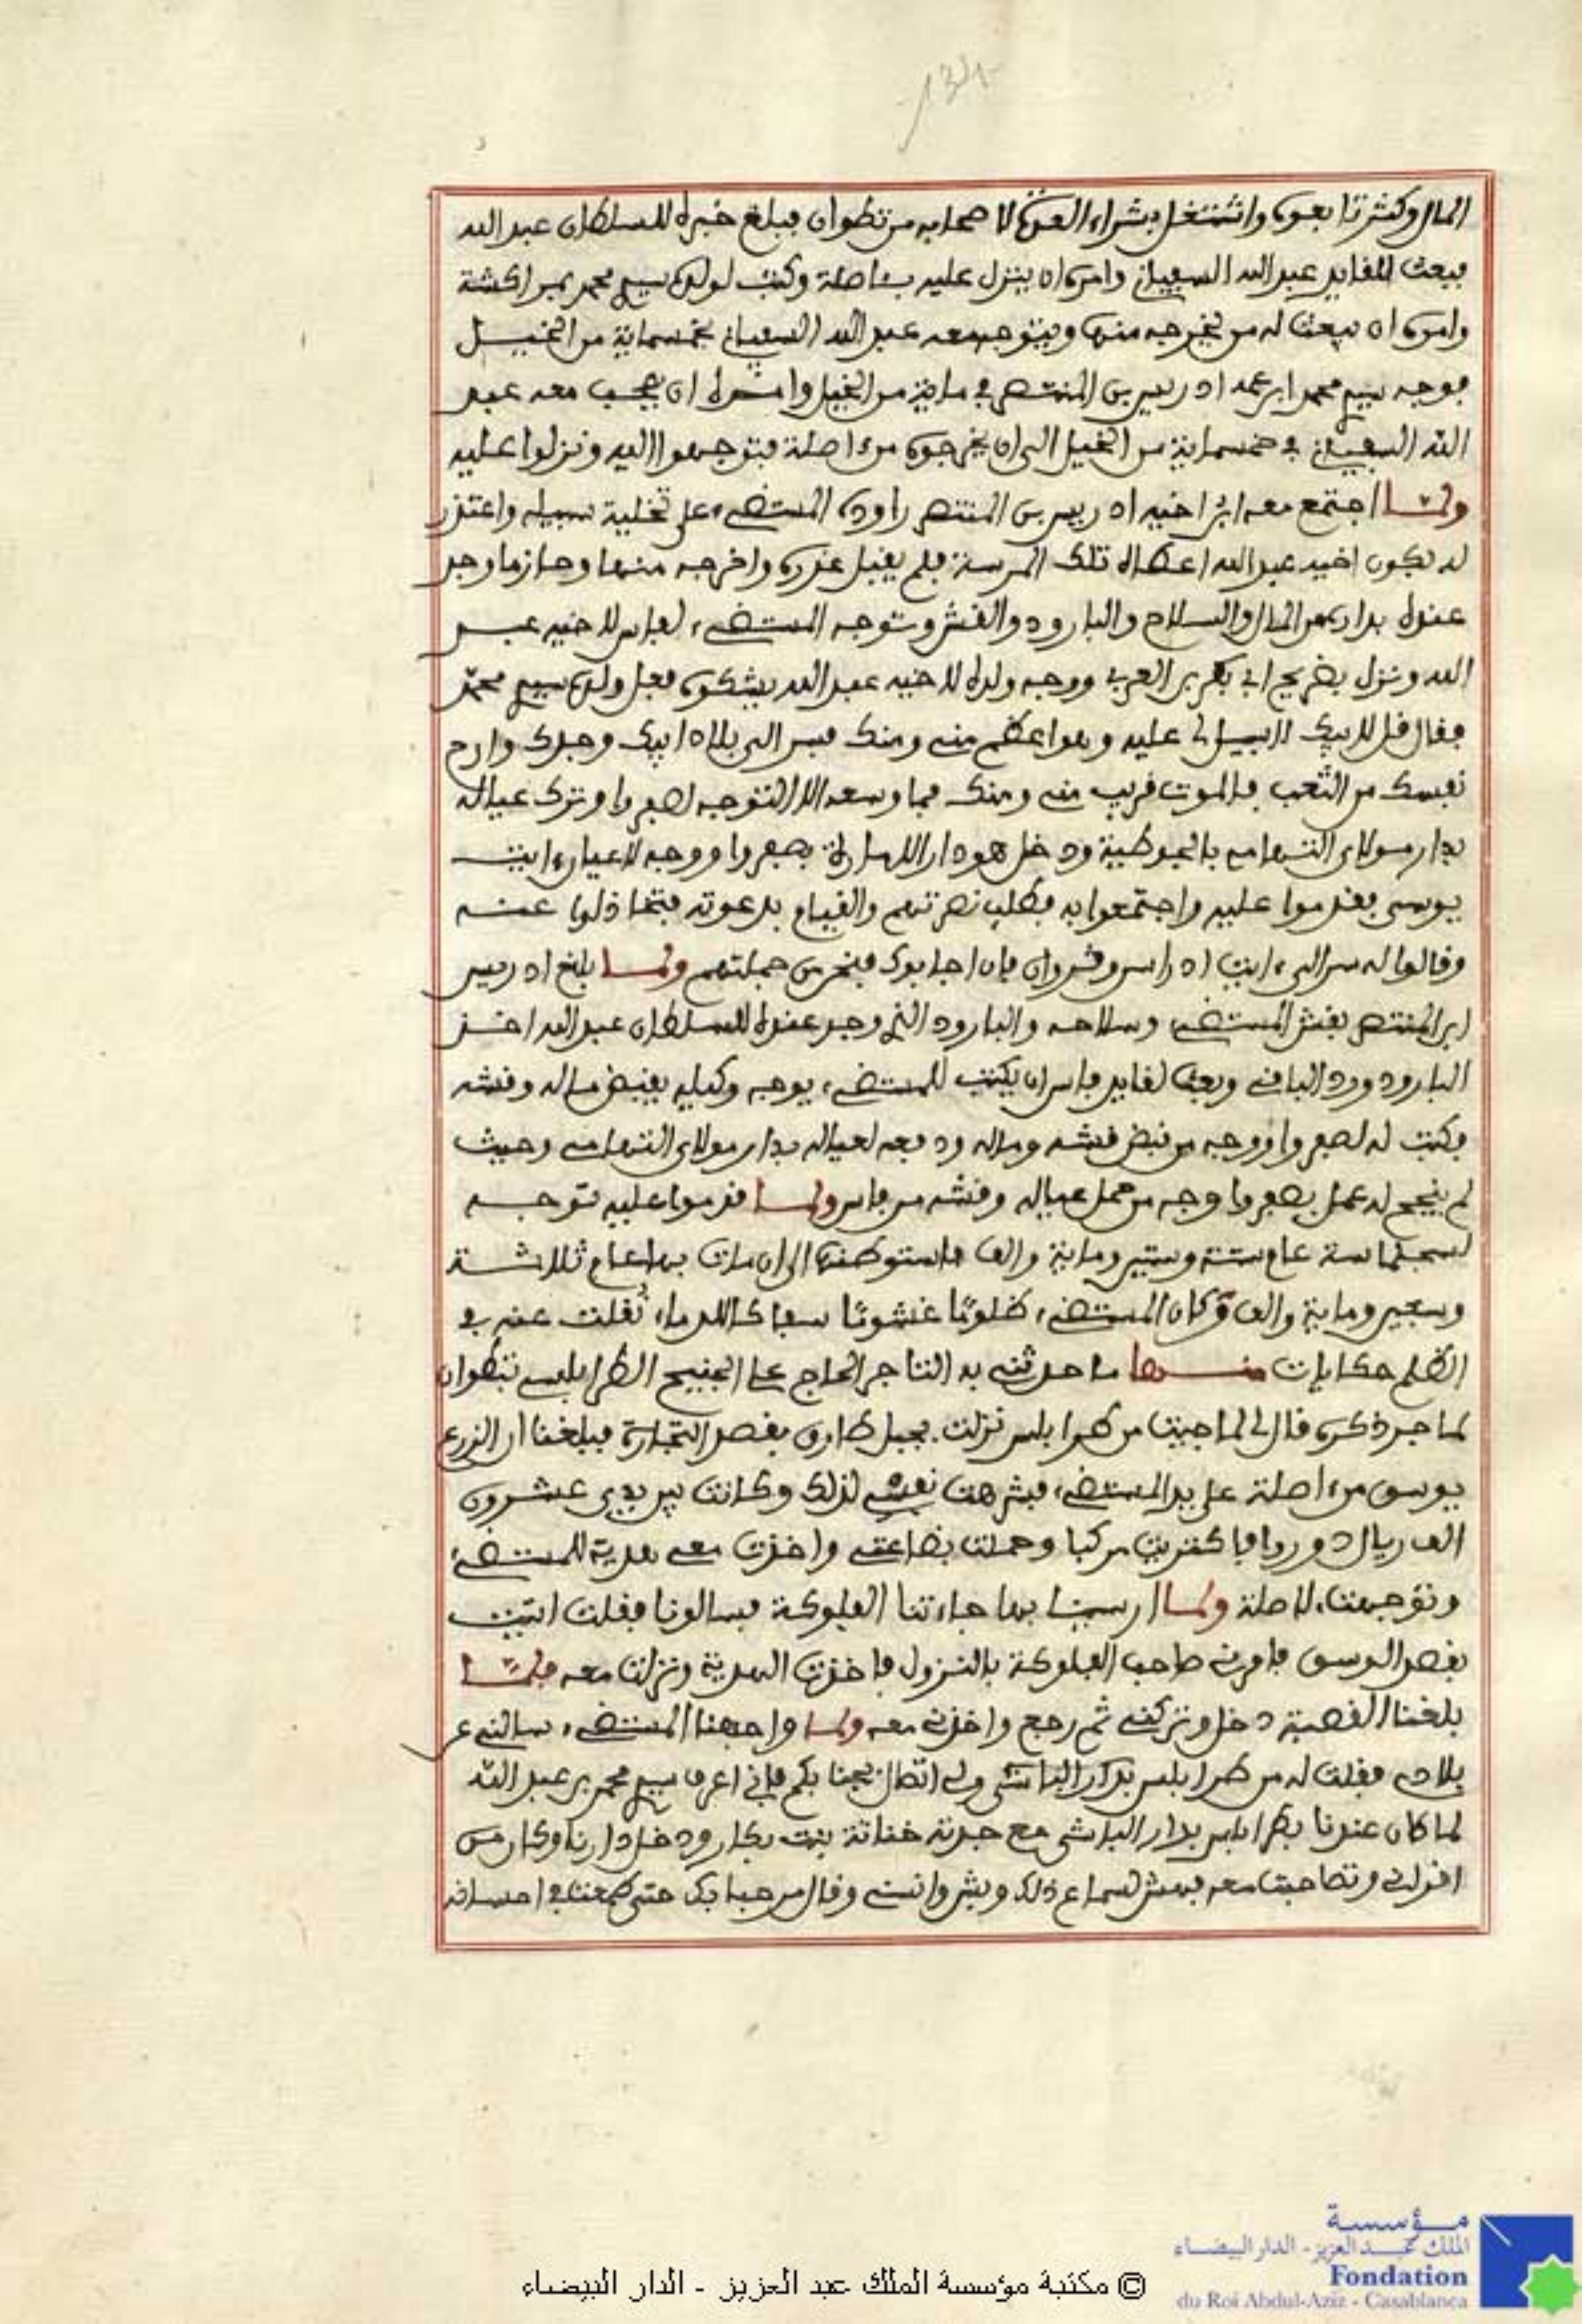 المال وكثر تابعوه واشتغل بشراء العدة لاصحابه من تطوان فبلغ خبره للسلطان عبد الله
فبعث للقايد عبد الله السفياني وامره ان ينزل عليه باصلة وكتب لولده سيدي محمد بمراكشة
وامره ان يبعث له من يخرجه منها ويتوجه معه عبد الله السفياني بخمسماية من الخيل
فوجه سيدي محمد ابن عمه ادريس بن المنتصر في ماية من الخيل وامره ان يصحب معه عبد
الله السفياني في خمسماية من الخيل الى ان يخرجوه من اصلة فتوجهوا اليه ونزلوا عليه
ولما اجتمع معه ابن اخيه ادريس بن المنتصر راوده المستضيء على تخلية سبيله واعتذر
له بكون اخيه عبد الله اعطاه تلك المرسة فلم يقبل عذره واخرجه منها وحاز ما وجد
عنده بداره من المال والسلاح والبارود والقش وتوجه المستضيء لفاس لاخيه عبد
الله ونزل بضريح ابي بكر بن العربي ووجه ولده لاخيه عبد الله يشكوه فعل ولده سيدي محمد
فقال قل لابيك لا سبيل لي عليه وهو اعظم مني ومنك فسر الى بلاد ابيك وجدك وارح
نفسك من التعب فالموت قريب مني ومنك فما وسعه الا التوجه لصفروا وترك عياله
بدار مولاي التهامي بالحبوطية ودخل هو دار الامارة بصفروا ووجه لاعيان ايت
يوسي فقدموا عليه واجتمعوا به فطلب نصرتهم والقيام بدعوته فتخاذلوا عنه
وقالوا له سر الى ايت ادراسن وقروان فان اجابوك فنحن من جملتهم ولما بلغ ادريس
ابن المنتصر بقش المستضيء وسلاحه والبارود الذي وجد عنده للسلطان عبد الله اخذ
البارود ورد الباقي وبعث لقايد فاس ان يكتب للمستضيء يوجه وكيله يقبض ماله وقشه
فكتب له لصفروا ووجه من قبض قشه وماله ودفعه لعياله بدار مولاي التهامي وحيث
لم ينجح له عمل بصفروا وجه من حمل عياله وقشه من فاس ولما قدموا عليه توجه
لسجلماسة عام ستة وستين وماية والف فاستوطنها الى ان مات بها عام ثلاثة
وسبعين وماية والف وكان المستضيء ظلوما غشوما سفاكا للدماء نقلت عنه في
الظلم حكايات منها ما حدثني به التاجر الحاج علي الجنيح الطرابلسي بتطوان
لما جر ذكره قال لي لما جيت من طرابلس نزلت بجبل طارق بقصد التجارة فبلغنا ان الزرع
يوسق من اصلة على يد المستضيء فشرهت نفسي لذلك وكانت بين يدي عشرون
الف ريال دورو فاكتريت مركبا وحملت بضاعتي واخذت معي هدية للمستضيء
وتوجهت لاصلة ولما ارسينا بها جاءتنا الفلوكة فسالونا فقلت اتيت
بقصد الوسق فامرني صاحب الفلوكة بالنزول فاخذت الهدية ونزلت معه فلما
بلغنا القصبة دخل وتركني ثم رجع واخذني معه ولما واجهنا المستضيء سالني عن
بلادي فقلت له من طرابلس بدار الباشى ولي اتصال بجنابكم فاني اعرف سيدي محمد بن عبد الله
لما كان عندنا بطرابلس بدار الباشى مع جدته خناتة بنت بكار ودخل دارنا وكان من
اقراني وتصاحبت معه فبهش لسماع ذلك وبش وانسني وقال مرحبا بك حتى طمعت في احسانه
© مكتبة مؤسسة الملك عبد العزيز - الدار البيضاء
مؤسسة
الملك عبد العزيز - الدار البيضاء
Fondation
du Roi Abdul-Aziz - Casablanca